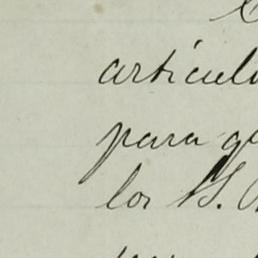 articul
para q
los B.